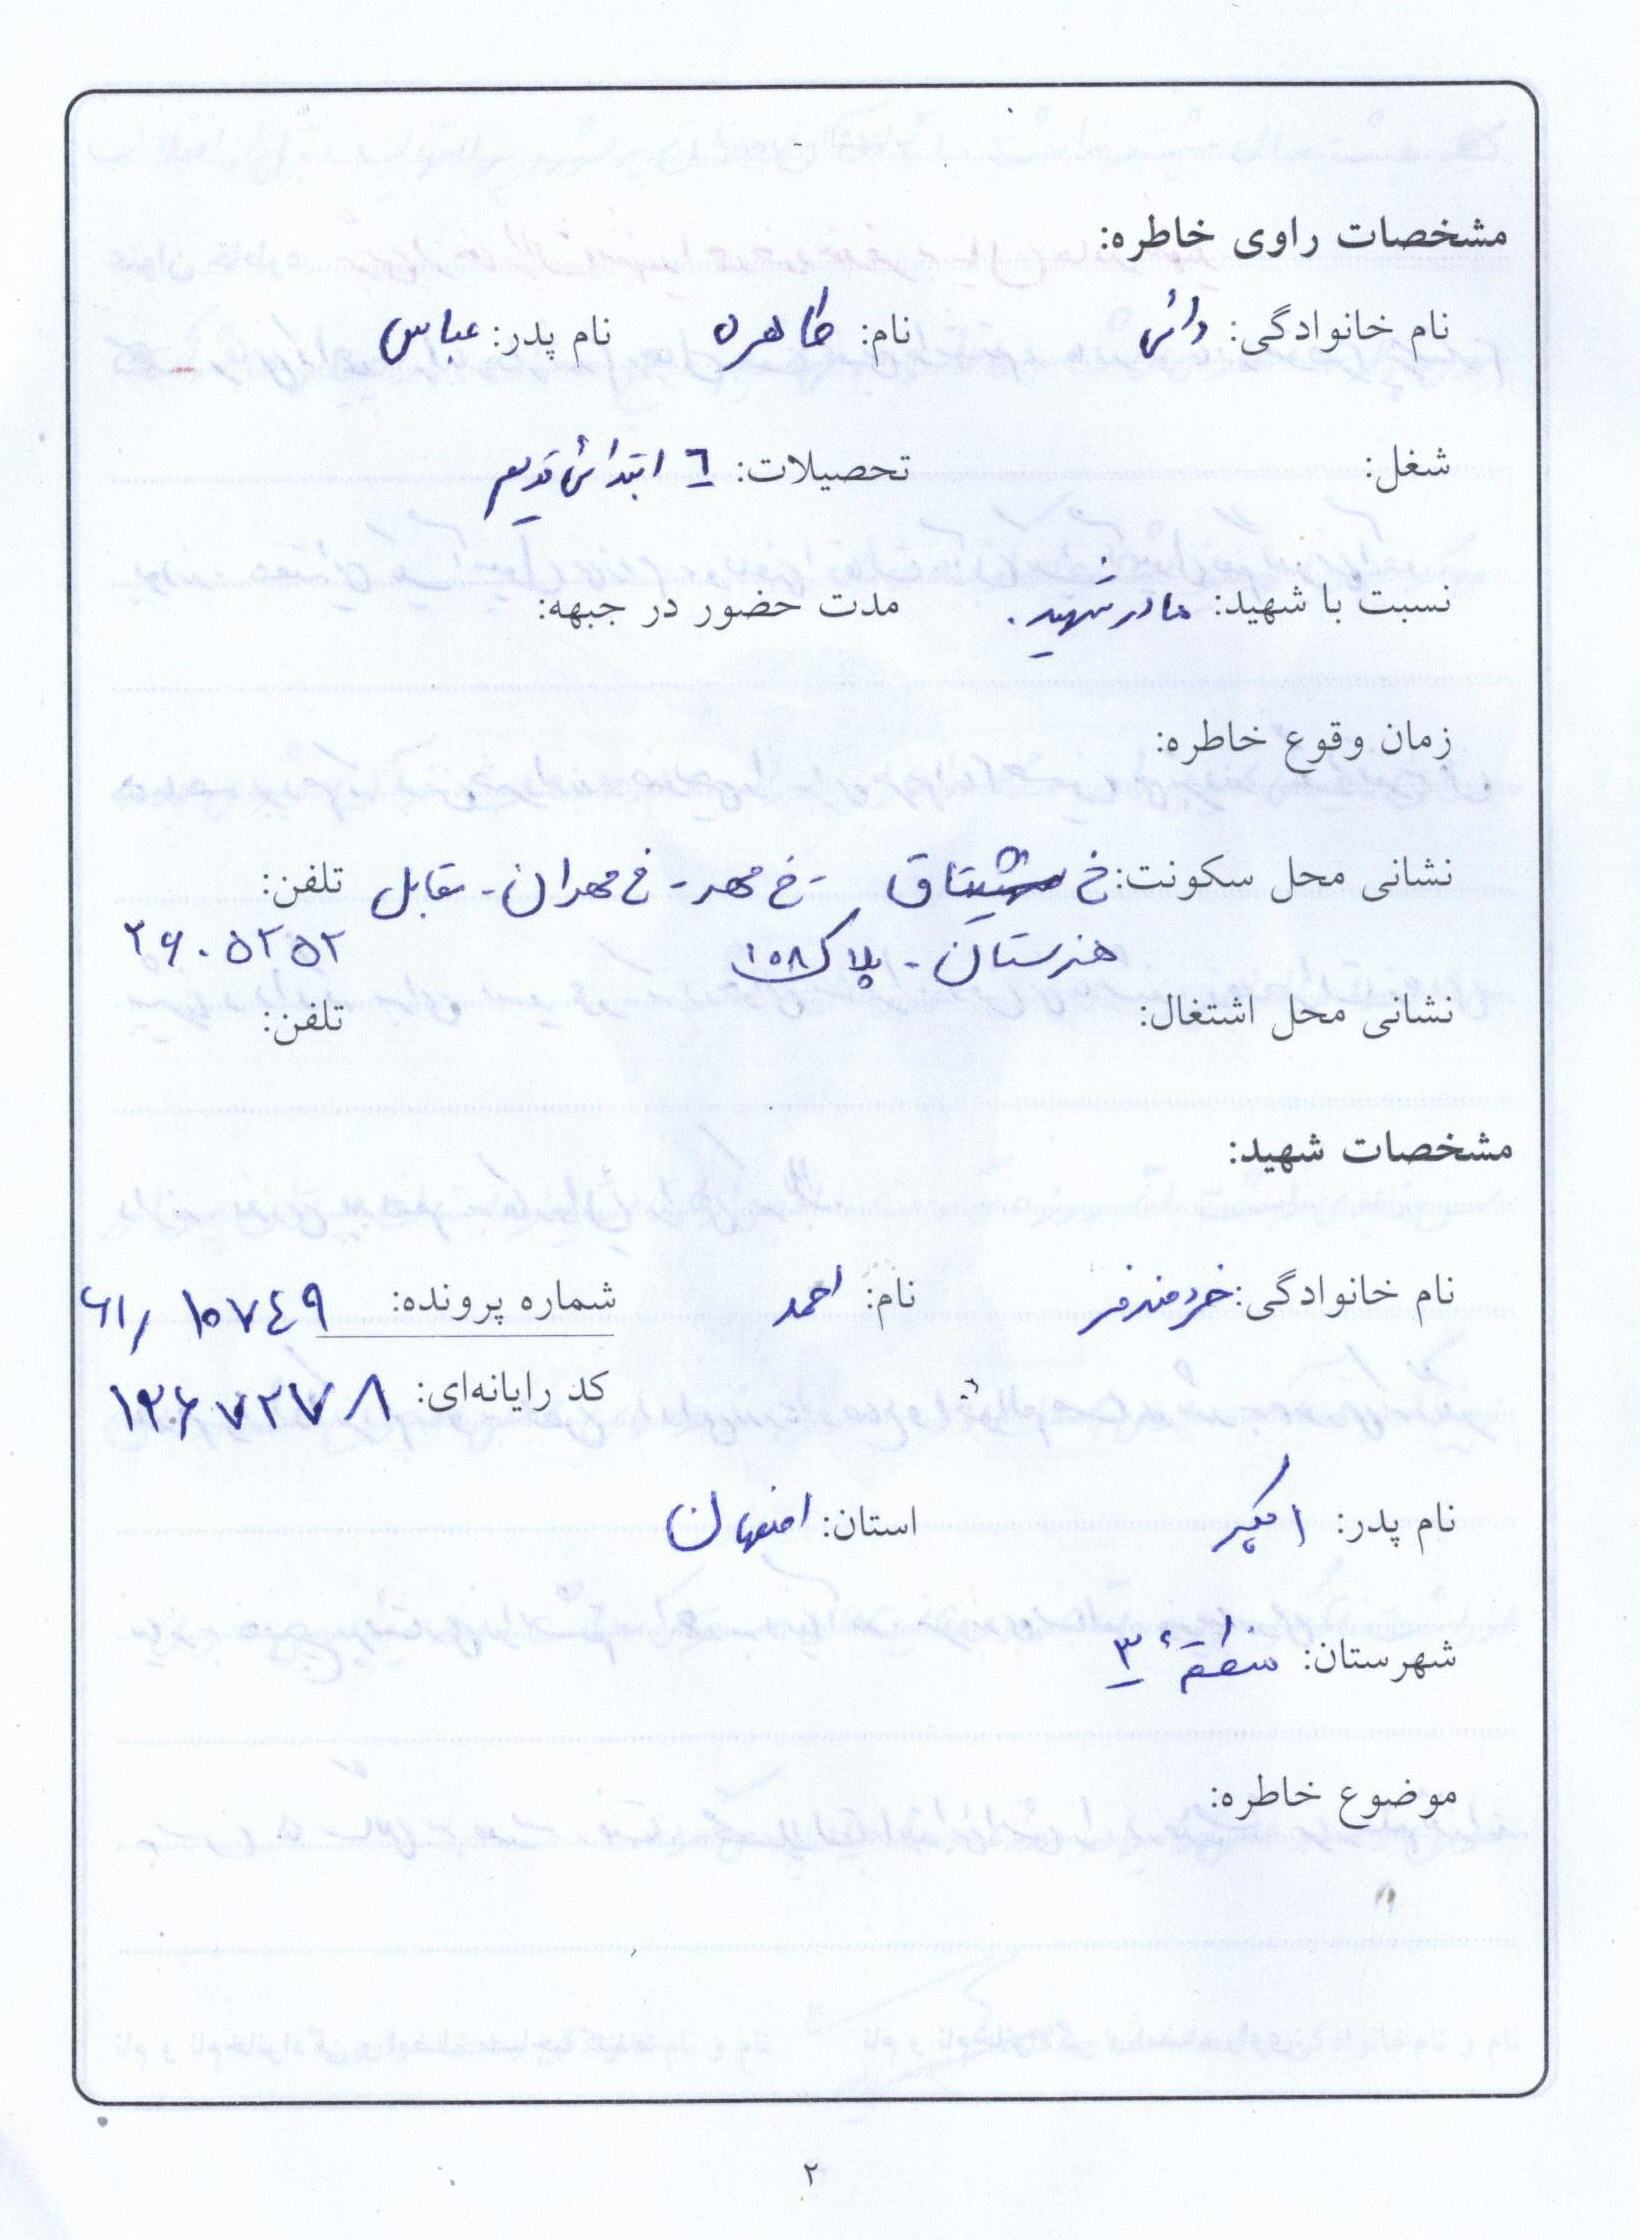 مشخصات راوی خاطره:
نام خانوادگی: دائی نام: طاهره نام پدر: عباس
شغل: تحصیلات: ٦ ابتدائی قدیم
نسبت با شهید: مادر شهید. مدت حضور در جبهه:
زمان وقوع خاطره:
نشانی محل سکونت: خ مشتاق - خ مهر - خ مهران - مقابل تلفن:
هنرستان - پلاک ۱۰۸ ۲۶۰۵۲۵۲
نشانی محل اشتغال: تلفن:
مشخصات شهید:
نام خانوادگی: خردمندفر نام: احمد شماره پرونده: ۶۱/۱۰۷٤۹
کد رایانه‌ای: ۱۳۶۷۲۷۸
نام پدر: اکبر استان: اصفهان
شهرستان: منطقهٔ ۳
موضوع خاطره:
۲